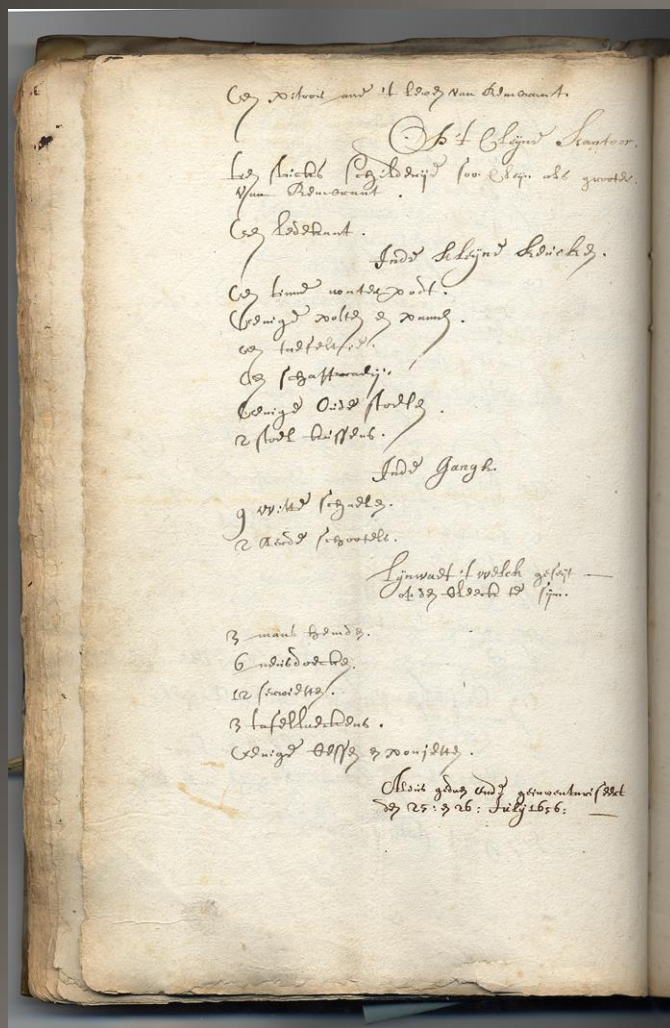 Een pitoor nae 't leven van Rembrant.
Op 't Cleyne Kantoor.
Tien stucks schilderije soo cleyn als groote
Van Rembrant.
Een ledekant.
Inde Kleyne Keucken.
Een tinne waterpodt.
Eenige potten en pannen.
een tafeltje.
Een schafferadij.
Eenige Oude stoelen.
2 stoel kussens.
Inde Gangh.
9 witte schaelen.
2 aerde schootels.
Lynwaet 't welch geseijt
op den bleeck te sijn.
3 mans hemden.
6 neusdoecken.
12 servietten.
3 tafellaeckens.
Eenige beffen en ponjetten.
Aldus gedaen ende geinventariseert
den 25: en 26: July 1656: